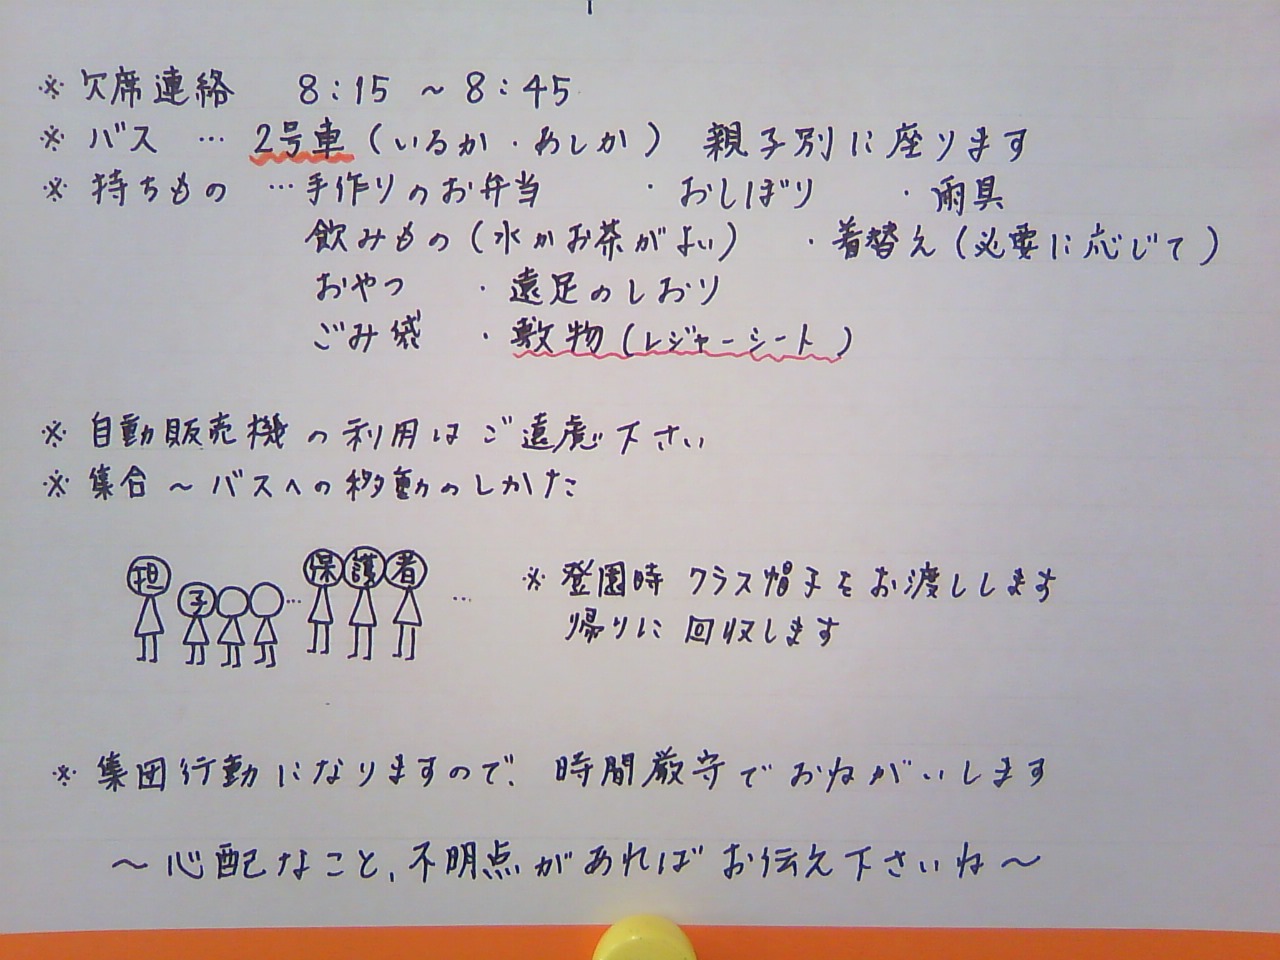 ※ 欠席連絡 8:15 ~ 8:45
※ バス … 2号車 (いるか・あしか) 親子別に座ります
※ 持ちもの …手作りのお弁当 ・おしぼり ・雨具
飲みもの(水かお茶がよい) ・着替え(必要に応じて)
おやつ ・遠足のしおり
ごみ袋 ・敷物(レジャーシート)
※ 自動販売機の利用はご遠慮下さい
※ 集合~バスへの移動のしかた
担 子 … 保 護 者 …
※ 登園時 クラス帽子をお渡しします
帰りに回収します
※ 集団行動になりますので、時間厳守でおねがいします
~心配なこと、不明点があればお伝え下さいね~